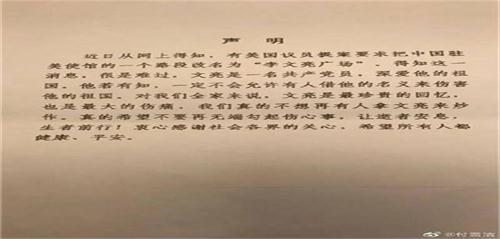 声 明
近日从网上得知，有美国议员提案要求把中国驻
美使馆的一个路段改名为“李文亮广场”，得知这一
消息，很是难过。文亮是一名共产党员，深爱他的祖
国，他若有知，一定不会允许有人借他的名义来伤害
他的祖国。对我们全家来说，文亮是最珍贵的回忆，
也是最大的伤痛，我们真的不想再有人拿文亮来炒
作。真的希望不要再无端勾起伤心事，让逝者安息，
生者前行！衷心感谢社会各界的关心，希望所有人都
健康、平安。
@付雪洁